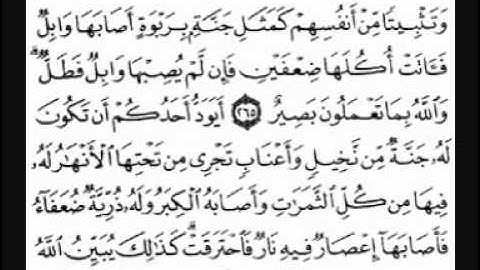 وَتَثْبِيتًا مِّنْ أَنفُسِهِمْ كَمَثَلِ جَنَّةٍۭ بِرَبْوَةٍ أَصَابَهَا وَابِلٌ
فَـَٔاتَتْ أُكُلَهَا ضِعْفَيْنِ فَإِن لَّمْ يُصِبْهَا وَابِلٌ فَطَلٌّ ۗ
وَٱللَّهُ بِمَا تَعْمَلُونَ بَصِيرٌ ٢٦٥ أَيَوَدُّ أَحَدُكُمْ أَن تَكُونَ
لَهُۥ جَنَّةٌ مِّن نَّخِيلٍ وَأَعْنَابٍ تَجْرِى مِن تَحْتِهَا ٱلْأَنْهَٰرُ لَهُۥ
فِيهَا مِن كُلِّ ٱلثَّمَرَٰتِ وَأَصَابَهُ ٱلْكِبَرُ وَلَهُۥ ذُرِّيَّةٌ ضُعَفَآءُ
فَأَصَابَهَآ إِعْصَارٌ فِيهِ نَارٌ فَٱحْتَرَقَتْ ۗ كَذَٰلِكَ يُبَيِّنُ ٱللَّهُ